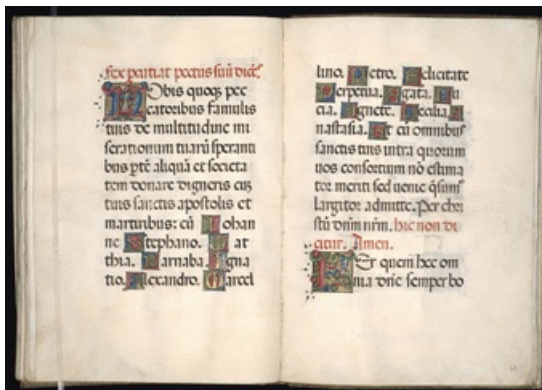 fex partiat pectus suū dicēs
Nobis quoqȝ pec
catoribus famulis
tuis de multitudine mi
serationum tuarū speranti
bus ptē aliquā et societa
tem donare digneris cū
tuis sanctis apostolis et
martiribus: cū Johan
ne Stephano. Mat
thia. Barnaba. Igna
tio. Alexandro. Marcel
lino. Petro. Felicitate
Perpetua. Agata. Lu
cia. Agnete. Cecilia. A
nastasia. Et cū omnibus
sanctis tuis intra quorum
nos consortium nō estima
tor meriti sed uenie qsum
largitor admitte. Per chri
stū dnm nrm. hic non di
citur. Amen.
Per quem hec om
nia dne semper bo